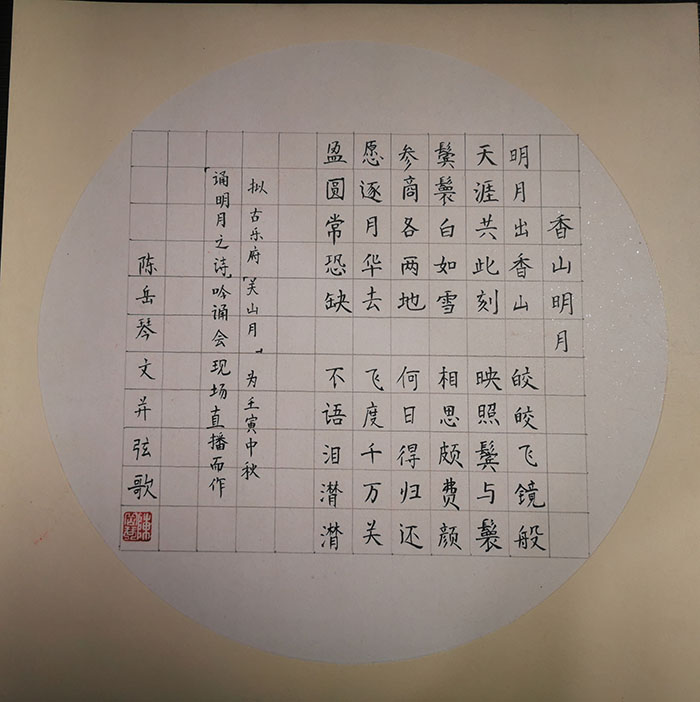 香山明月
明月出香山 皎皎飞鏡般
天涯共此刻 映照鬓与鬟
鬓鬟白如雪 相思颇费颜
参商各两地 何日得归还
愿逐月华去 飞度千万关
盈圆常恐缺 不语泪潸潸
拟古乐府「关山月」为壬寅中秋
「诵明月之诗」吟诵会现场直播而作
陈岳琴文并弦歌